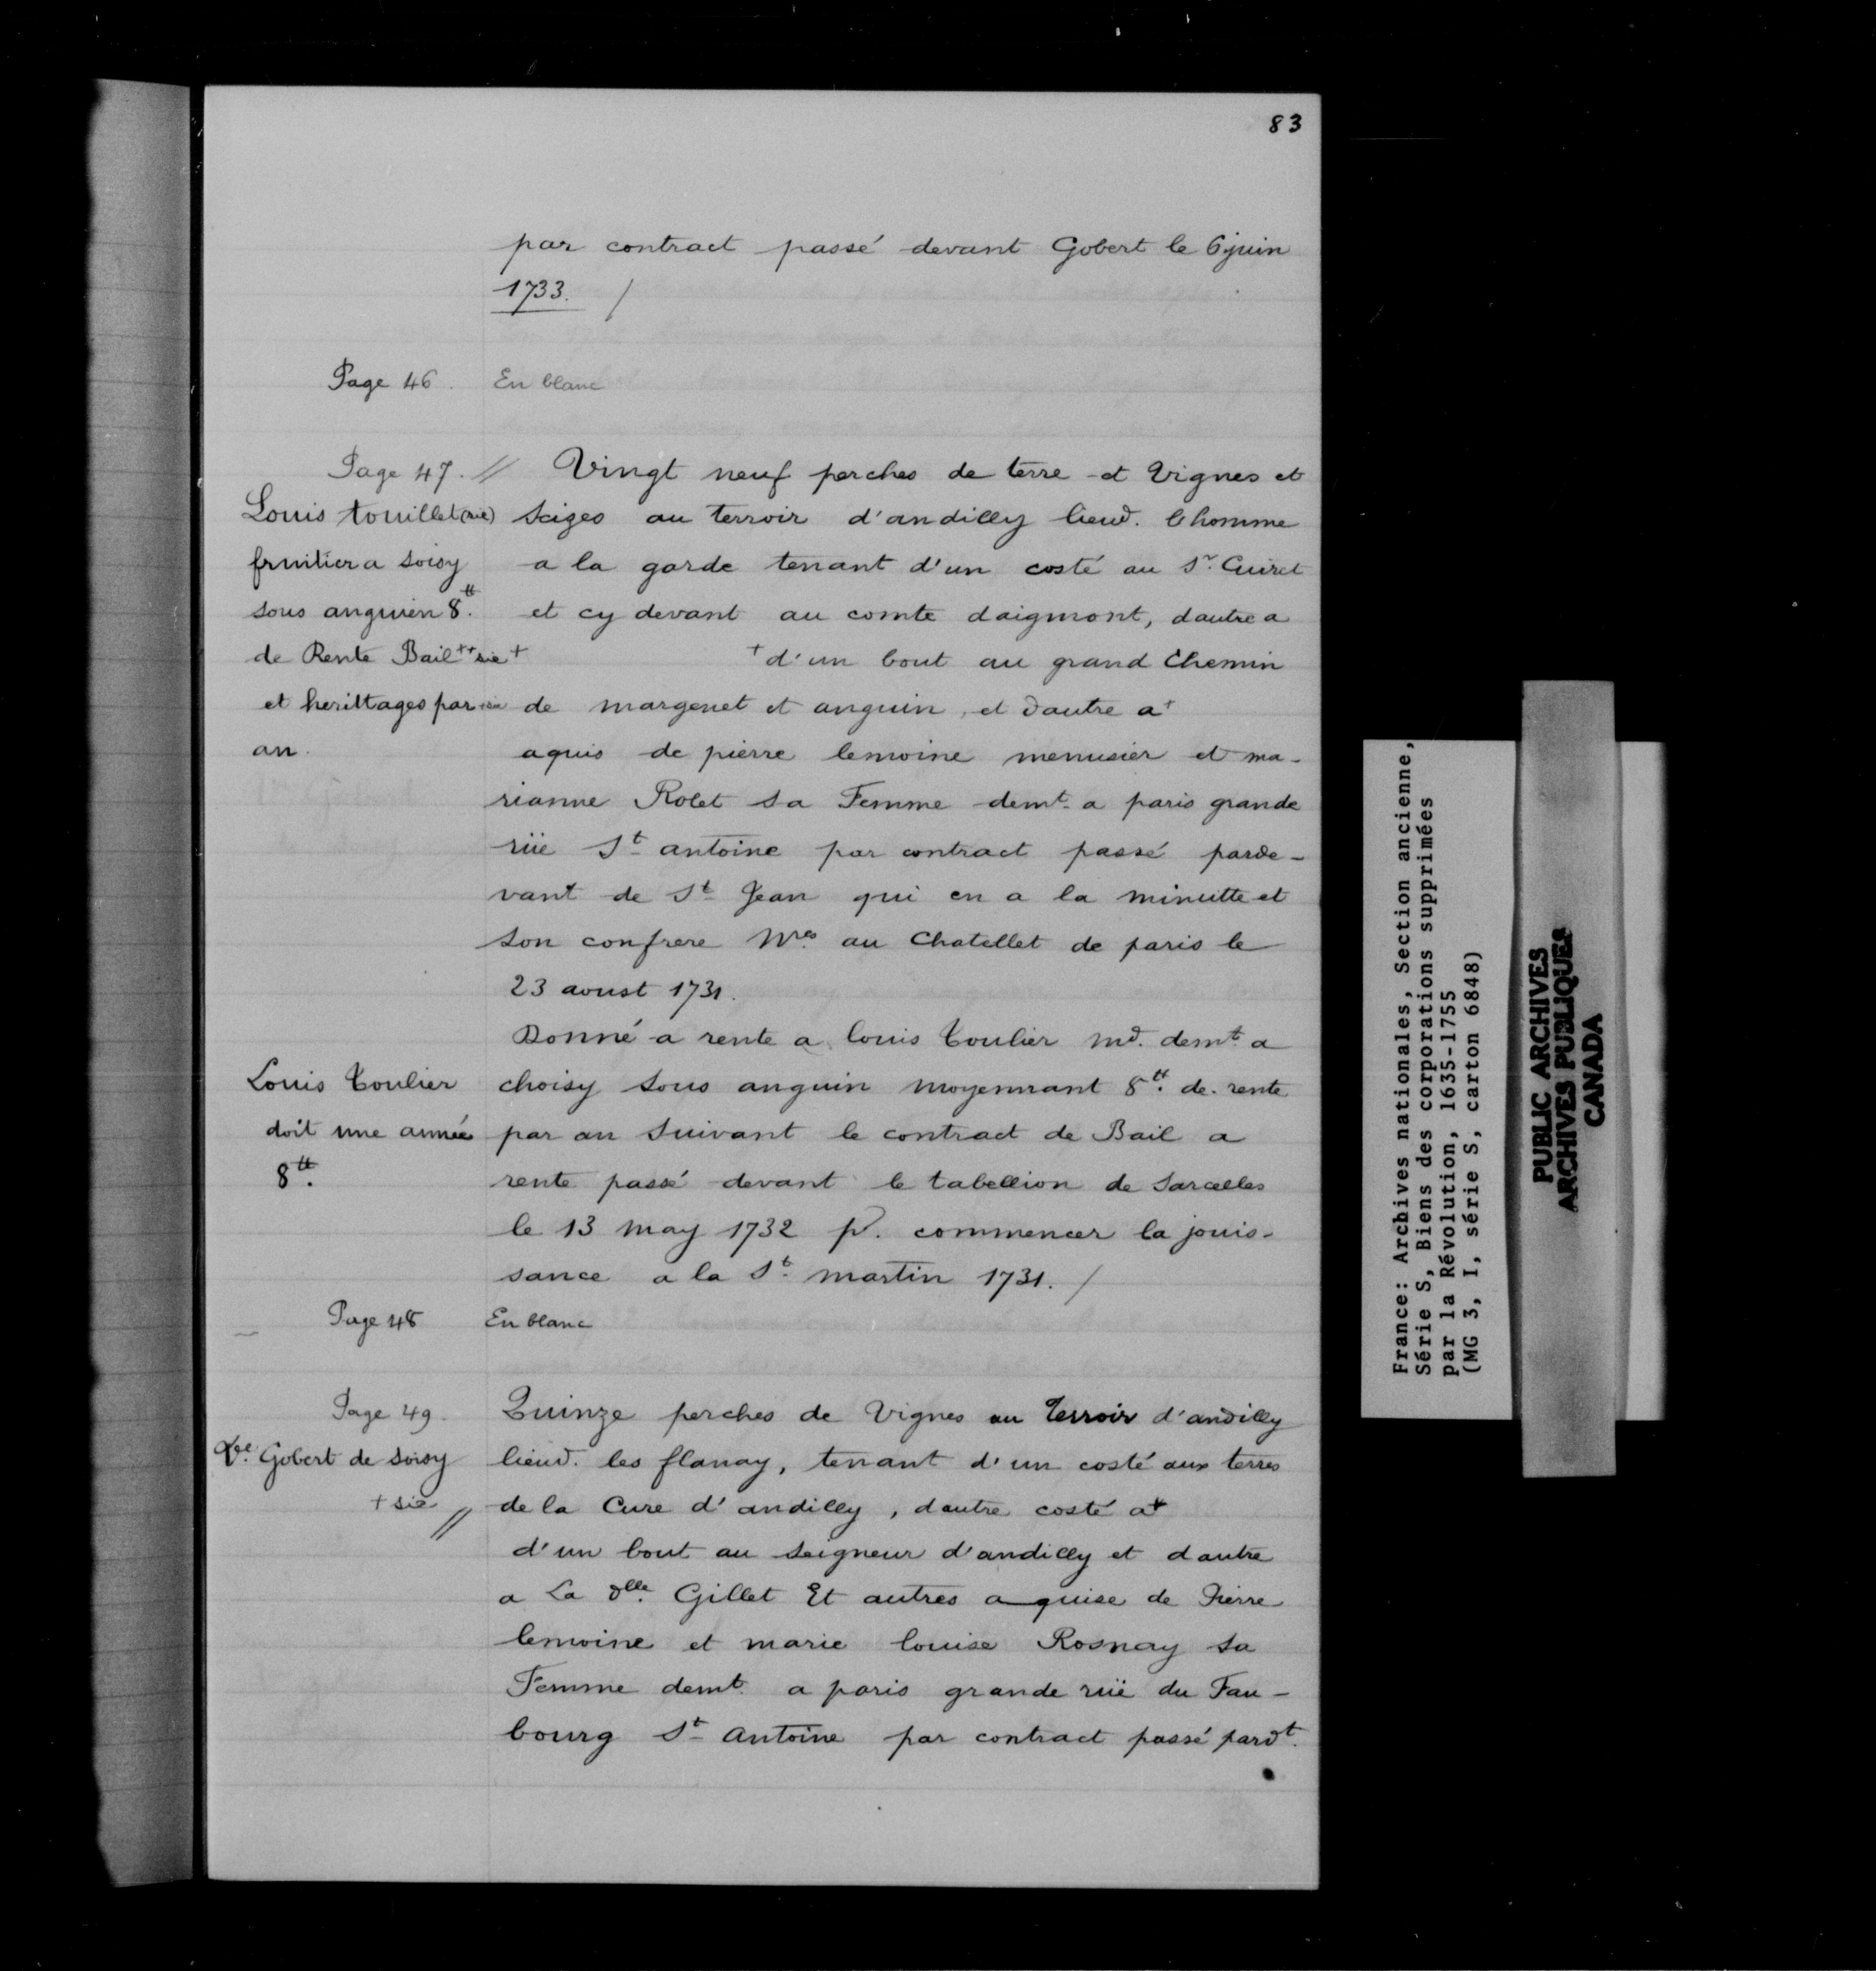 83
par contract passé devant Gobert le 6 juin
1733. /
Page 46. En blanc
Page 47. // Vingt neuf perches de terre et Vignes et
Louis touillet (sic) scizes au terroir d'andilly lieud. lhomme
fruitier a soisy a la garde tenant d'un costé au Sr. Cuiret
sous anguien 8tt. et cy devant au comte daigmont, dautre a
de Rente Bail ++ sic + + d'un bout au grand Chemin
et herittages par de margenet et anguin, et dautre a +
an. aquis de pierre lemoine menusier et ma-
rianne Rolet sa Femme demt. a paris grande
rüe St. antoine par contract passé parde-
vant de St. Jean qui en a la minutte et
son confrere Nres au Chatellet de paris le
23 aoust 1731.
Donné a rente a louis Toulier md. demt. a
Louis Toulier choisy sous anguin moyennant 8tt. de rente
doit une année par an suivant le contract de Bail a
8tt. rente passé devant le tabellion de Sarcelles
le 13 may 1732 pr. commencer la jouis-
sance a la St. martin 1731. /
Page 48 En blanc
Page 49. Quinze perches de Vignes au Terroir d'andilly
Ve. Gobert de soisy lieud. les flanay, tenant d'un costé aux terres
+ sic // de la Cure d'andilly, dautre costé a +
d'un bout au seigneur d'andilly et dautre
a La dlle. Gillet Et autres aquise de Pierre
lemoine et marie louise Rosnay sa
Femme demt. a paris grande rüe du Fau-
bourg St. Antoine par contract passé pardt.
France: Archives nationales, Section ancienne,
Série S, Biens des corporations supprimées
par la Révolution, 1635-1755
(MG 3, I, série S, carton 6848)
PUBLIC ARCHIVES
ARCHIVES PUBLIQUES
CANADA